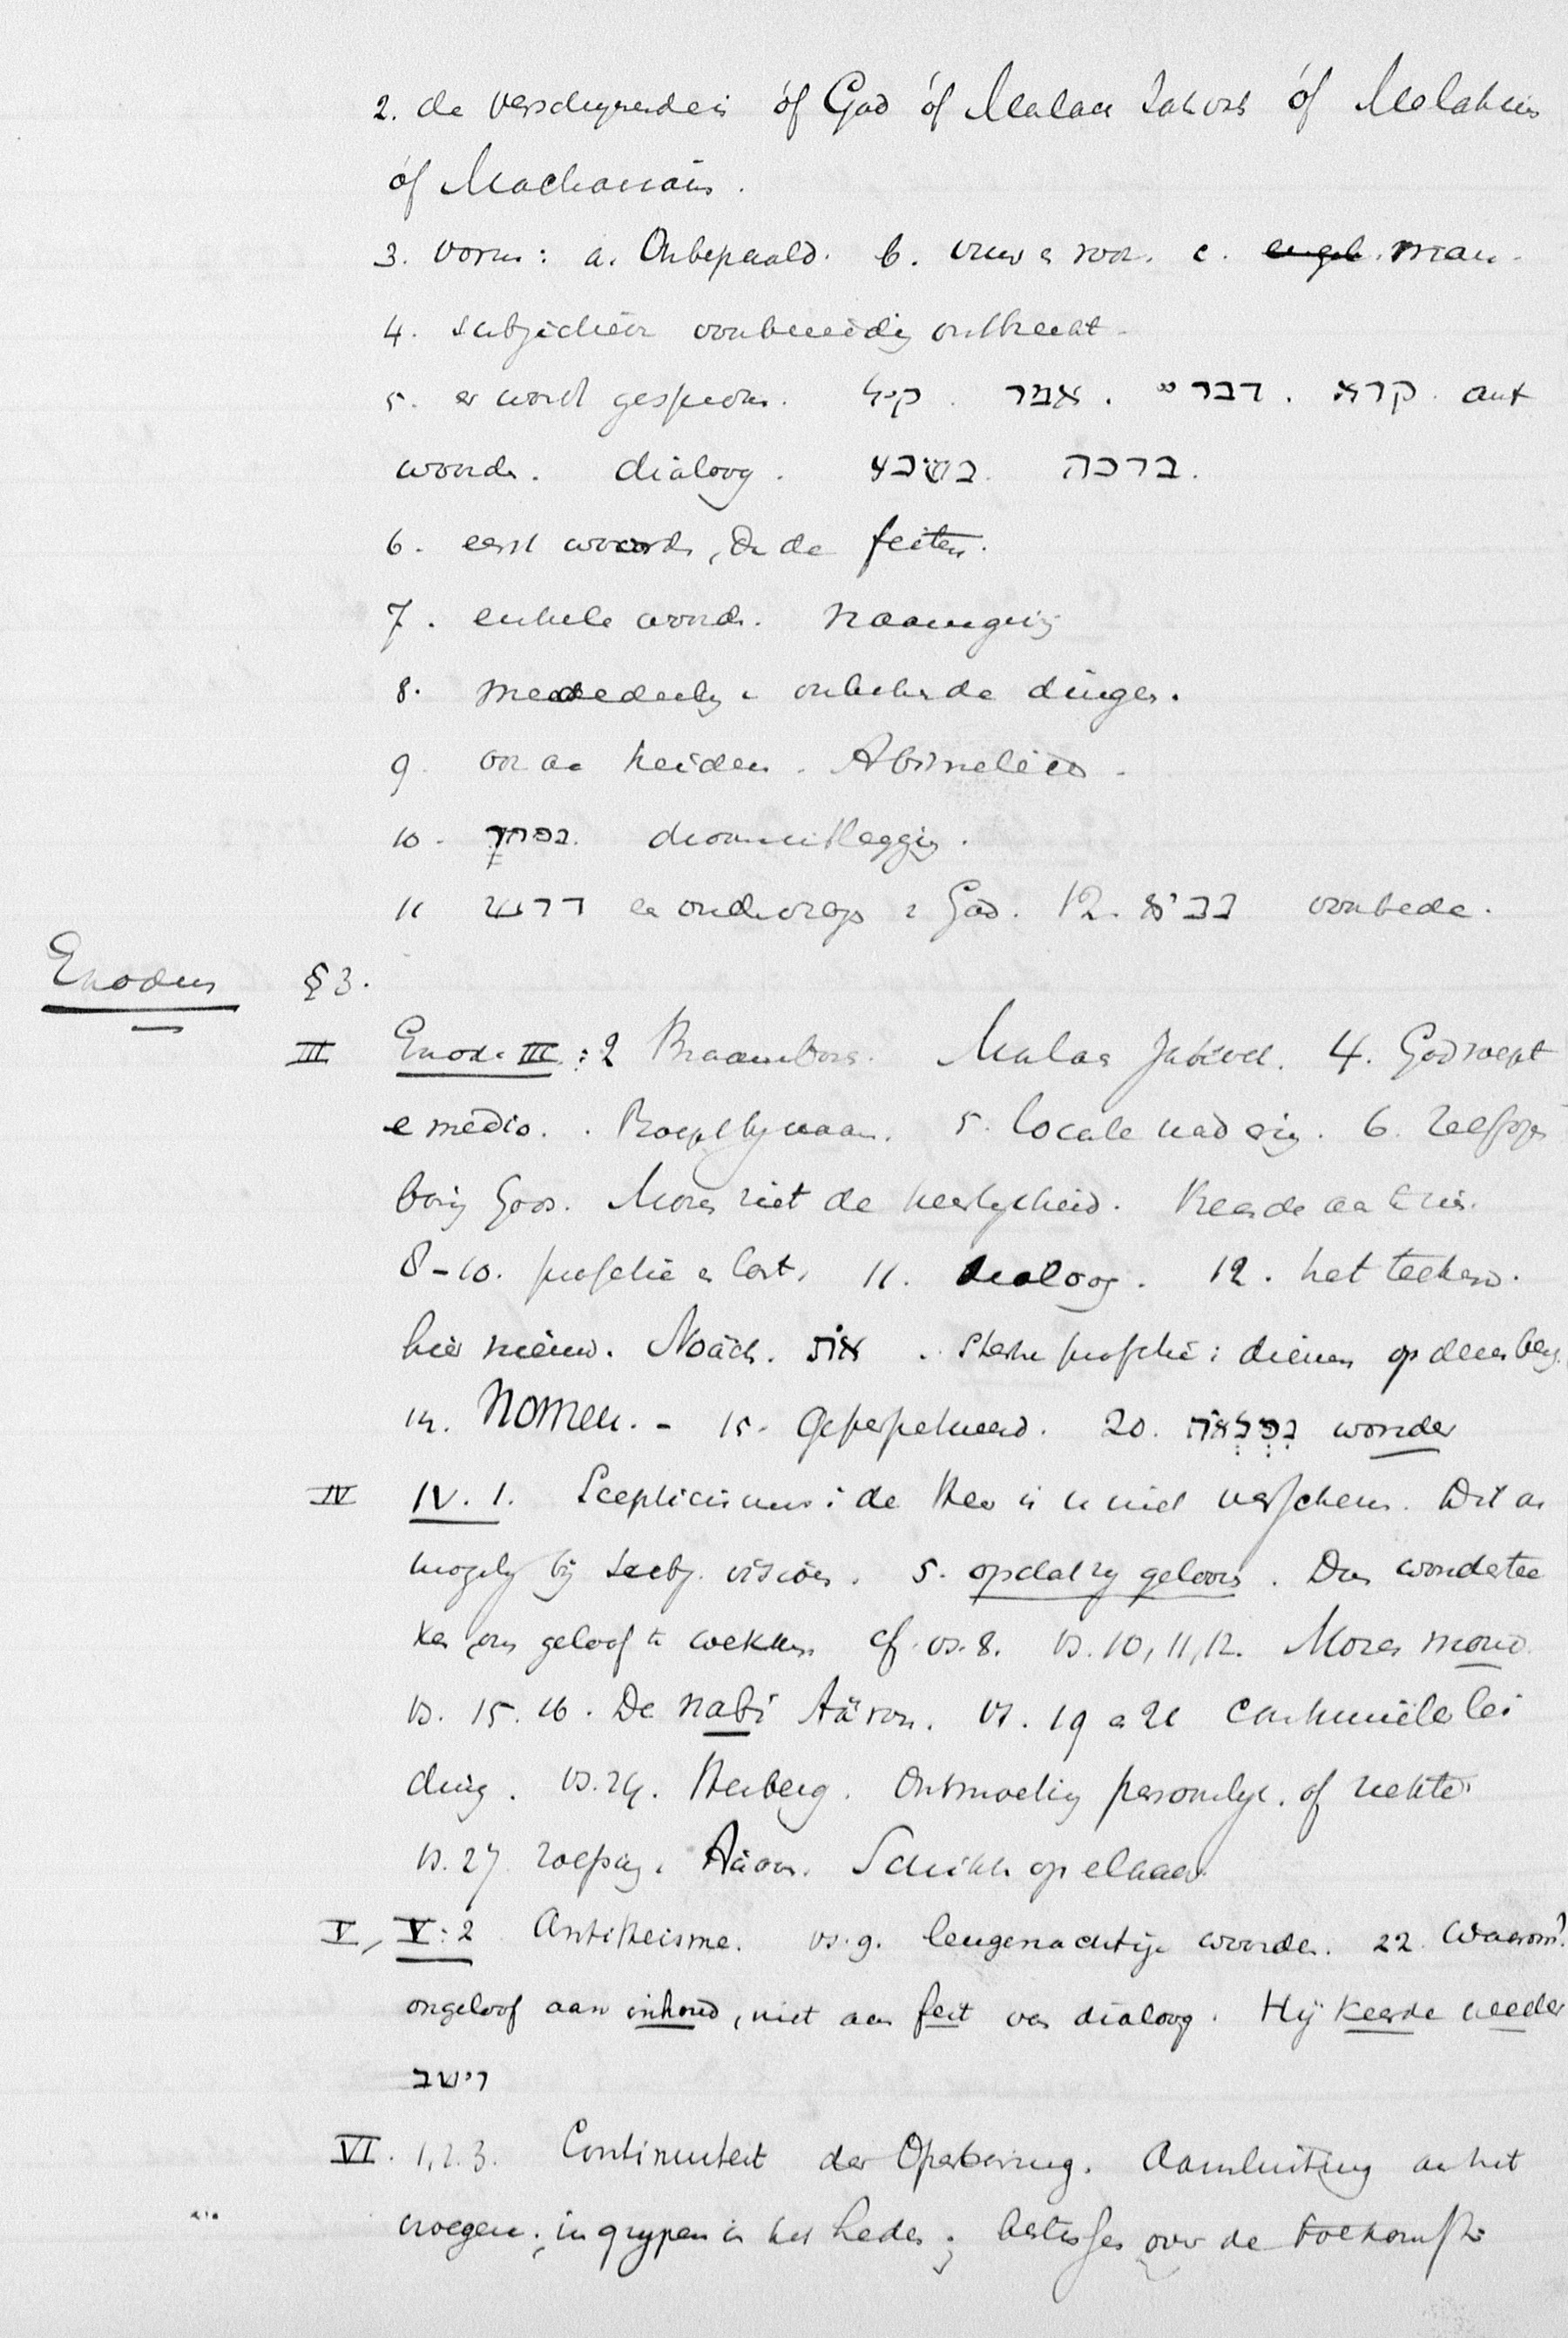 2. de verschynende is óf God óf Malaac Jahveh óf Malakim
óf Machanaim.
3. vorm: a. Onbepaald. b. vuur & rook. c. engel. man.
4. subjectieve voorbereiding ontbreekt.
5. er wordt gesproken. קול . אמר . דבר . קרא . ant
woorden. dialoog. נשבע . ברכה.
6. eerst woorden, dan de feiten.
7. enkele woorden. naamgeving
8. mededeeling v onbekende dingen.
9. ook aan heiden. Abimelech.
10. droomuitlegging.
11 דרש en ondervragen v God. 12. נביא voorbede.
Exodus §3.
III Exod. III:2 Braambosch. Malac Jahveh. 4. God roept
e medio. Roept by naam. 5. locale nadering. 6. Zelfopen
baring Gods. Mozes ziet de heerlykheid. Vreesde aan te zien.
8-10. profetie & last. 11. dialoog. 12. het teeken.
hier nieuw. Noäch. אות . Sterke profetie: dienen op dezen berg.
14. Nomen. - 15. Geperpetueerd. 20. נפלאת wonder
IV IV. 1. Scepticisme: de Heer is u niet verschenen. Dit on
mogelyk bij subj. visioen. 5. opdat zy gelooven. Dus wondertee
ken om geloof te wekken cf. vs. 8. vs. 10, 11, 12. Mozes mond.
vs. 15. 16. De nabi Aäron. vs. 19 & 21 continuëele lei
ding. vs. 24. Herberg. Ontmoeting persoonlyk. of ziekte?
vs. 27 roeping v Aäron. Schikk op elkaar
V, V:2 Antitheisme. vs. 9. leugenachtige woorden. 22. Waarom?
ongeloof aan inhoud, niet aan feit van dialoog. Hij keerde weder
וישב
VI. 1, 2. 3. Continuiteit der Openbaring. Aansluiting aan het
vroegere; ingrypen in het heden; beslissen over de toekomst.